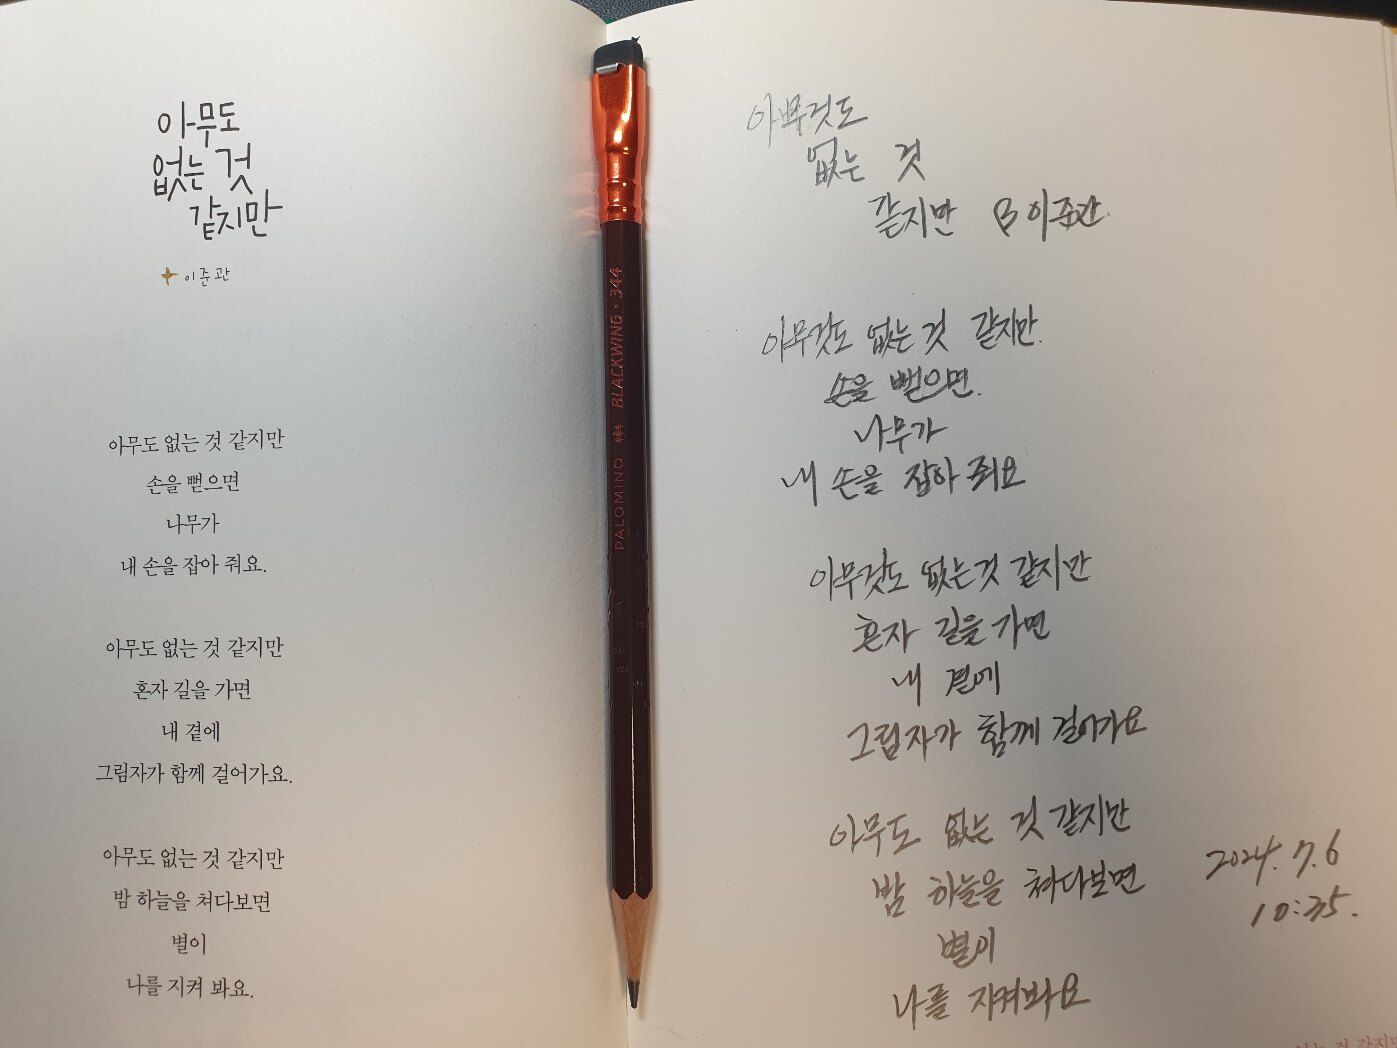 아무도
없는 것
같지만
이준관
아무도 없는 것 같지만
손을 뻗으면
나무가
내 손을 잡아 줘요.
아무도 없는 것 같지만
혼자 길을 가면
내 곁에
그림자가 함께 걸어가요.
아무도 없는 것 같지만
밤 하늘을 쳐다보면
별이
나를 지켜 봐요.
PALOMINO BLACKWING · 344
아무것도
없는 것
같지만 이준관.
아무것도 없는 것 같지만.
손을 뻗으면.
나무가
내 손을 잡아 줘요
아무것도 없는 것 같지만
혼자 길을 가면
내 곁에
그림자가 함께 걸어가요
아무도 없는 것 같지만
밤 하늘을 쳐다보면
별이
나를 지켜봐요
2024. 7. 6
10:35.